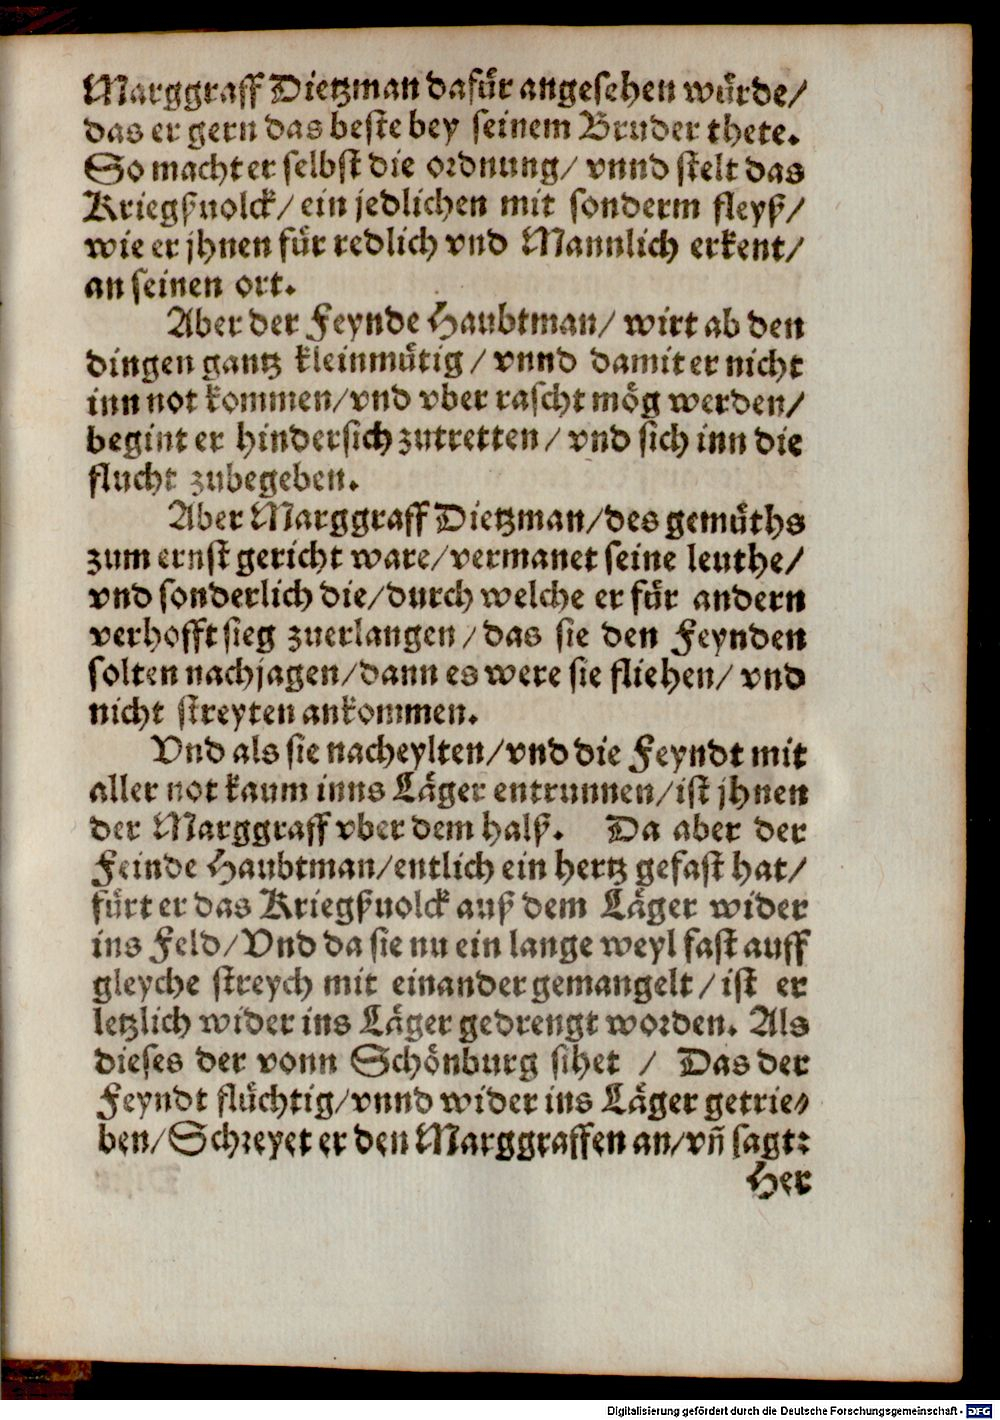 Marggraff Dietzman dafür angesehen würde/
das er gern das beste bey seinem Bruder thete.
So macht er selbst die ordnung/ vnnd stelt das
Kriegßuolck/ ein jedlichen mit sonderm fleyß/
wie er jhnen für redlich vnd Mannlich erkent/
an seinen ort.
Aber der Feynde Haubtman/ wirt ab den
dingen gantz kleinmütig/ vnnd damit er nicht
inn not kommen/vnd vber rascht mög werden/
begint er hindersich zutretten/ vnd sich inn die
flucht zubegeben.
Aber Marggraff Dietzman/des gemüths
zum ernst gericht ware/vermanet seine leuthe/
vnd sonderlich die/durch welche er für andern
verhofft sieg zuerlangen/das sie den Feynden
solten nachjagen/dann es were sie fliehen/ vnd
nicht streyten ankommen.
Vnd als sie nacheylten/vnd die Feyndt mit
aller not kaum inns Läger entrunnen/ist jhnen
der Marggraff vber dem halß. Da aber der
Feinde Haubtman/entlich ein hertz gefast hat/
fürt er das Kriegßuolck auß dem Läger wider
ins Feld/Vnd da sie nu ein lange weyl fast auff
gleyche streych mit einander gemangelt/ist er
letzlich wider ins Läger gedrengt worden. Als
dieses der vonn Schönburg sihet / Das der
Feyndt flüchtig/vnnd wider ins Läger getrie⸗
ben/Schreyet er den Marggraffen an/vñ sagt:
Her
Digitalisierung gefördert durch die Deutsche Forschungsgemeinschaft - DFG